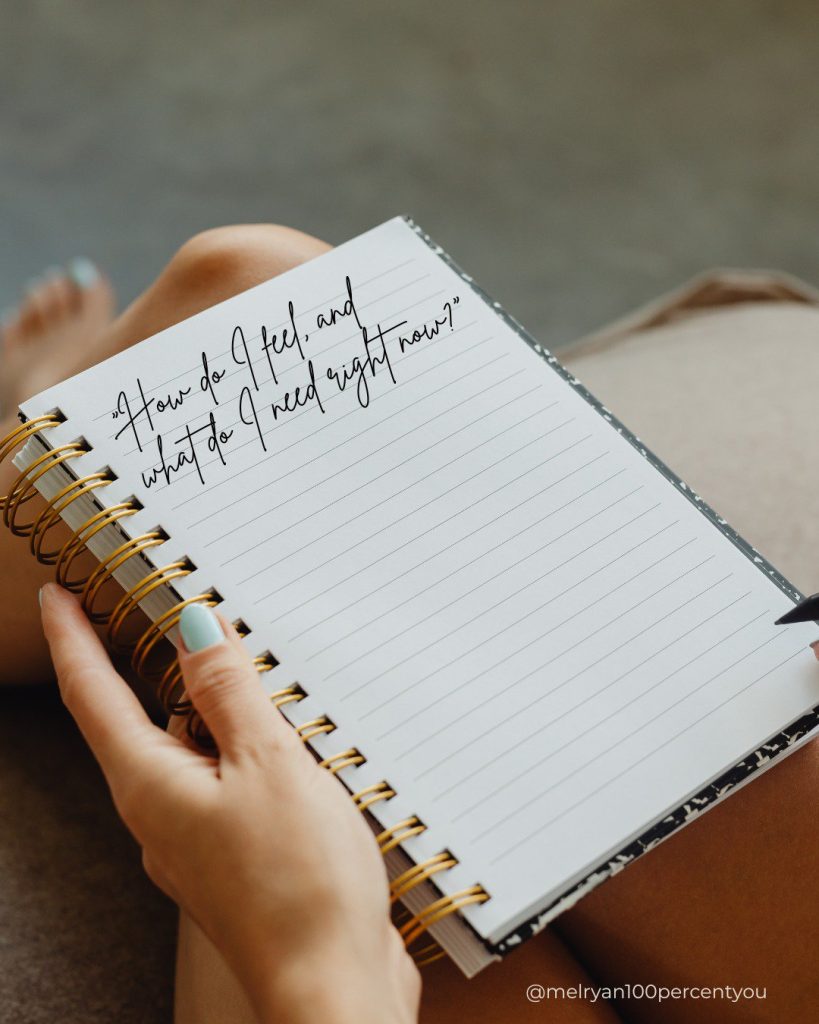 "How do I feel, and
what do I need right now?"
@melryan100percentyou